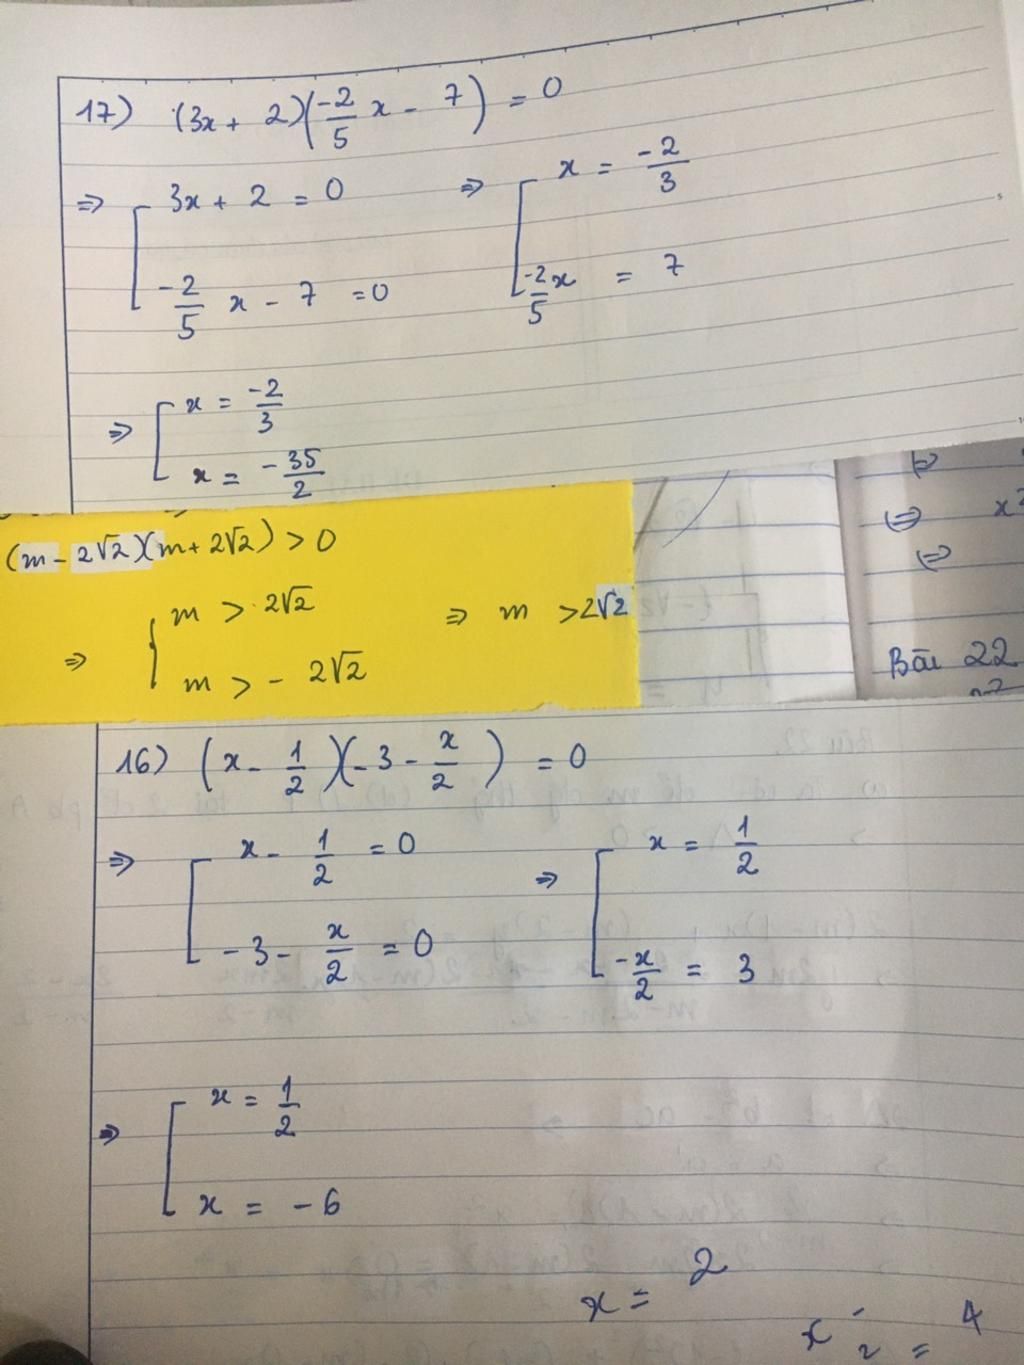 17) (3x + 2)(-2/5 x - 7) = 0
⇒ [ 3x + 2 = 0 ⇒ [ x = -2/3
-2/5 x - 7 = 0 -2/5 x = 7
⇒ [ x = -2/3
x = -35/2
(m - 2√2)(m + 2√2) > 0
⇒ { m > 2√2 ⇒ m > 2√2
m > - 2√2
⇔
⇔ x²
⇔
Bài 22
16) (x - 1/2)(-3 - x/2) = 0
⇒ [ x - 1/2 = 0 ⇒ [ x = 1/2
-3 - x/2 = 0 -x/2 = 3
⇒ [ x = 1/2
x = -6
x = 2
x₂ = 4